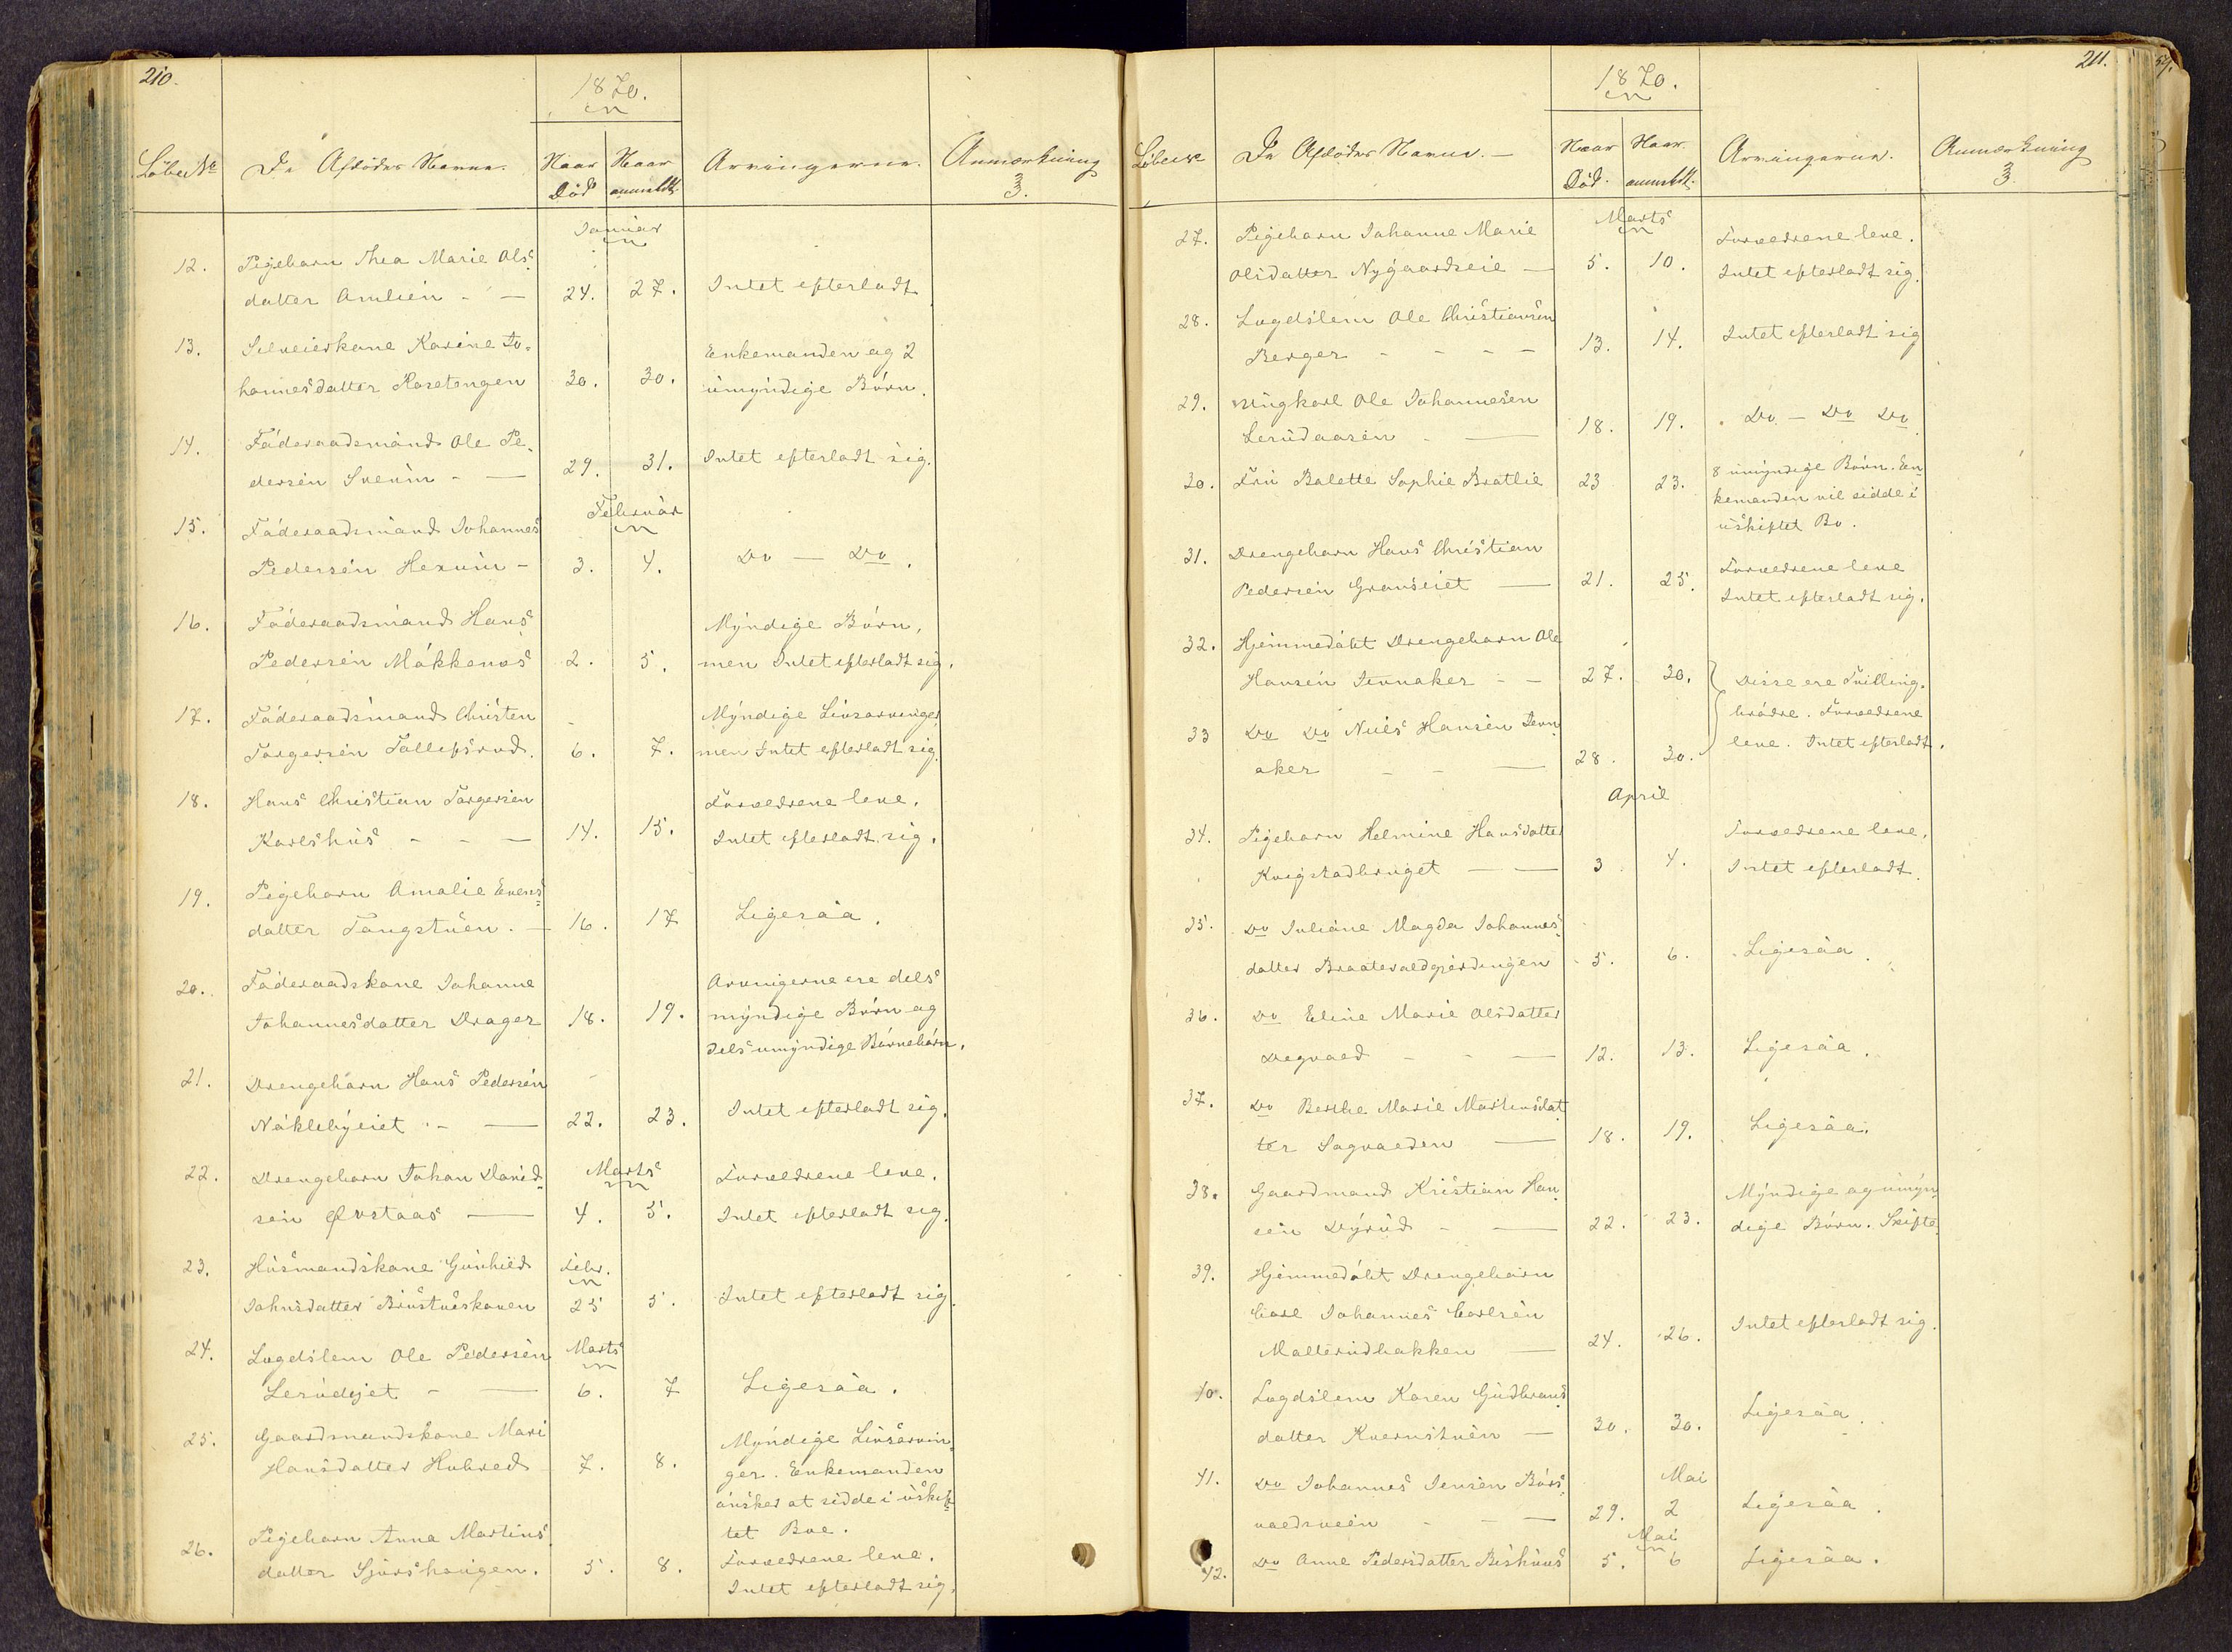 210.
1870.
Löbe№ De Afdödes Navne. Naar Död Naar anmeldt. Arvingerne. Anmærkning 3.
Januar
12. Pigebarn Thea Marie Ols-
datter Amlien - — 24. 27. Intet efterladt
13. Selveierkone Karine Jo-
Enkemanden og 2
hannesdatter Haretangen 30. 30. umyndige Börn.
14. Föderaadsmand Ole Pe-
dersen Sveum - — 29. 31. Intet efterladt sig.
Februar
15. Föderaadsmand Johannes
Pedersen Hexum - 3. 4. Do — Do.
16. Föderaadsmand Hans
Myndige Börn,
Pedersen Mökkenes 2. 5. men Intet efterladt sig.
17. Föderaadsmand Christen
Myndige Livsarvinger
Torgersen Tollefsrud. 6. 7. men Intet efterladt sig.
18. Hans Christian Torgersen
Forældrene leve.
Karlshus - - — 14. 15. Intet efterladt sig.
19. Pigebarn Amalie Evens-
datter Tangstuen. — 16. 17 Ligesaa.
20. Föderaadskone Johanne
Arvingerne ere dels
Johannesdatter Drager 18. 19. myndige Börn og
dels umyndige Börnebörn.
21. Drengebarn Hans Pedersen
Nöklebyeiet - — 22. 23. Intet efterladt sig.
22. Drengebarn Johan David-
Marts
Forældrene leve.
sen Ovstaas — 4. 5. Intet efterladt sig.
23. Husmandskone Gunhild
Febr.
Johnsdatter 25 5. Intet efterladt sig.
24. Lægdslem Ole Pedersen
Marts
Lerudejet - — 6. 7 Ligesaa.
25. Gaardmandskone Mari
Myndige Livsarvin-
Hansdatter Hubred 7. 8. ger. Enkemanden
önsker at sidde i uskif-
tet Boe.
26. Pigebarn Anna Martins-
Forældrene leve.
datter Sjörshaugen. 5. 8. Intet efterladt sig.
211.
1870.
Löbe№ De Afdödes Navne. — Naar Död. Naar anmeldt. Arvingerne. Anmærkning 3
Marts
27. Pigebarn Johanne Marie
Forældrene leve.
Olsdatter Nygaardseie — 5. 10. Intet efterladt sig.
28. Lægdslem Ole Christiansen
Berger - - - — 13. 14. Intet efterladt sig
29. Ungkarl Ole Johannesen
Lerudaasen - — 18. 19. Do — Do Do.
30. Fru Balette Sophie Bratlie 23 23. 8 umyndige Börn. En-
kemanden vil sidde i
uskiftet Bo.
31. Drengebarn Hans Christian
Forældrene leve
Pedersen Granseiet — 21. 25. Intet efterladt sig.
32. Hjemmedöbt Drengebarn Ole
Hansen Jevnaker - - 27. 30. Disse ere Tvilling-
brödre. Forældrene
33 Do Do Nils Hansen Jevn-
leve. Intet efterladt.
aker - - — 28. 30.
April
34. Pigebarn Helmine Hansdatter
Forældrene leve.
Kvigstadbruget — — 3 4. Intet efterladt.
35. Do Juliane Magda Johannes-
datter 5. 6. Ligesaa.
36. Do Eline Marie Olsdatter
Degvold - - — 12. 13. Ligesaa.
37. Do Berthe Marie Martinsdat-
ter Sagvolden — 18. 19. Ligesaa.
38. Gaardmand Kristian Han-
Myndige og umyn-
sen Dyrud - — 22. 23. dige Börn. Skifte.
39. Hjemmedöbt Drengebarn
Carl Johannes Carlsen
Mallerudbakken — 24. 26. Intet efterladt sig.
40. Lægdslem Karen Gudbrans-
datter Kvernstuen — 30. 30. Ligesaa.
41. Do Johannes Jensen Börs-
Mai
voldsveen - - — 29. 2 Ligesaa.
Mai
42. Do Anne Pedersdatter Bishuus 5. 6 Ligesaa.